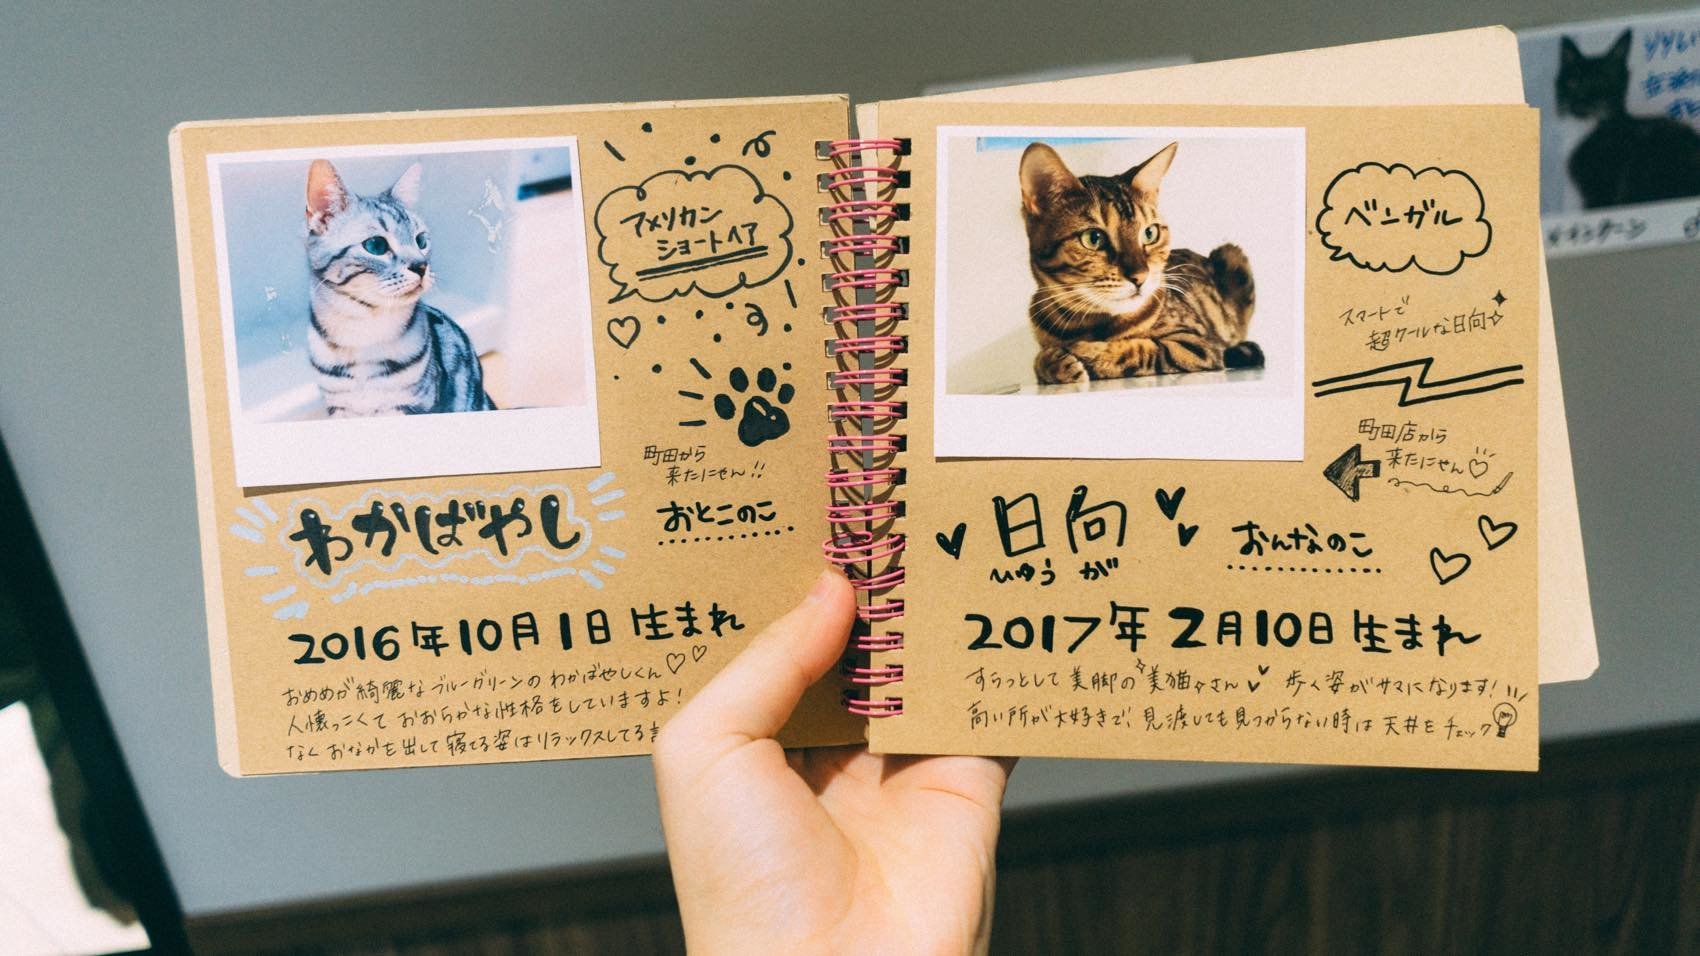 アメリカン
ショートヘア
町田から
来たにゃん!!
わかばやし
おとこのこ
2016年10月1日 生まれ
おめめが綺麗なブルーグリーンの わかばやしくん♡♡
人懐っこくて おおらかな性格をしていますよ!
なく おなかを出して 寝てる姿はリラックスしてる
ベンガル
スマートで
超クールな日向
町田店から
来たにゃん♡
日向
ひゅうが
おんなのこ
2017年 2月10日 生まれ
すらっとして美脚の美猫さん♥ 歩く姿がサマになります!
高い所が大好きで、見渡しても見つからない時は 天井をチェック